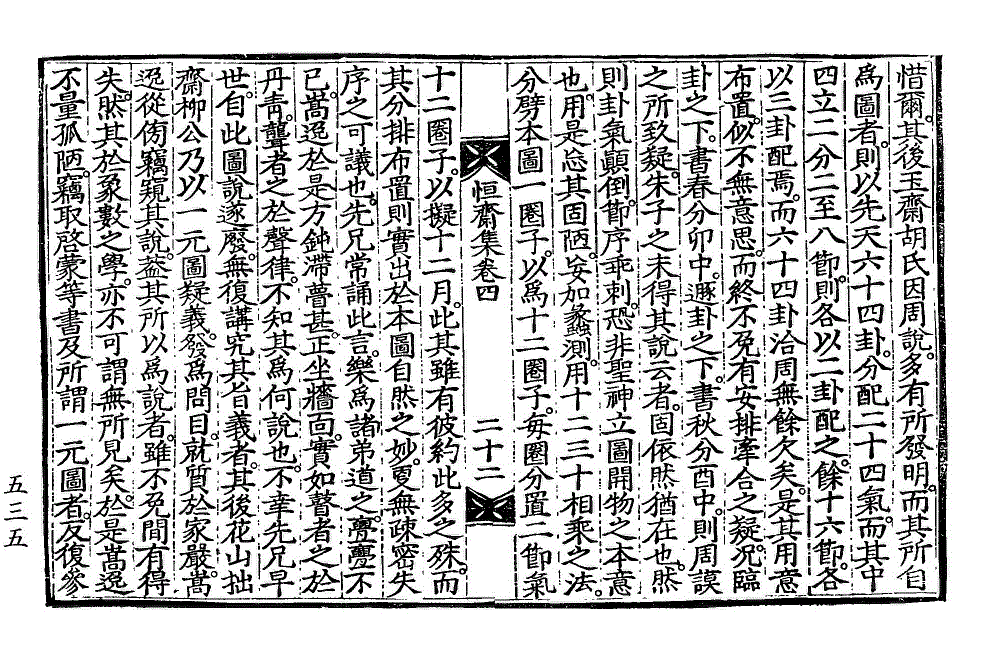 惜爾。其後玉齋胡氏因周說。多有所發明。而其所自
爲圖者。則以先天六十四卦。分配二十四氣。而其中
四立二分二至八節。則各以二卦配之。餘十六節。各
以三卦配焉。而六十四卦洽周無餘欠矣。是其用意
布置。似不無意思。而終不免有安排牽合之疑。況臨
卦之下。書春分卯中。遯卦之下。書秋分酉中。則周謨
之所致疑。朱子之未得其說云者。固依然猶在也。然
則卦氣顚倒。節序乖刺。恐非聖神立圖開物之本意
也。用是忘其固陋。妄如蠡測。用十二三十相乘之法。
分劈本圖一圈子。以爲十二圈子。每圈分置二節氣
恒齋集卷四
二十二
十二圈子。以擬十二月。此其雖有彼約此多之殊。而
其分排布置則實出於本圖自然之妙。夏無疎密失
序之可議也。先兄常誦此言。樂爲諸弟道之。亹亹不
已。嵩逸於是方鈍滯蒙甚。正坐牆面。實如瞽者之於
丹靑。聾者之於聲律。不知其爲何說也。不幸先兄早
世。自此圖說遂廢。無復講究其旨義者。其後花山拙
齋柳公乃以一元圖疑義。發爲問目。就質於家嚴。嵩
逸從傍竊窺其說。葢其所以爲說者。雖不免間有得
失。然其於象數之學。亦不可謂無所見矣。於是嵩逸
不量孤陋。竊取啓蒙等書及所謂一元圖者。反復參
五三五